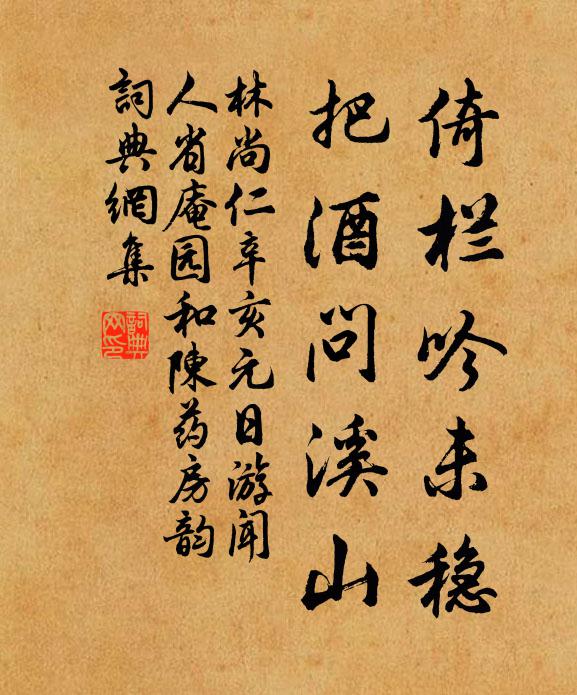 倚栏吟未稳
把酒问溪山
林尚仁辛亥元日游闻
人省庵园和陳药房韵
詞典網集
詞典
网印